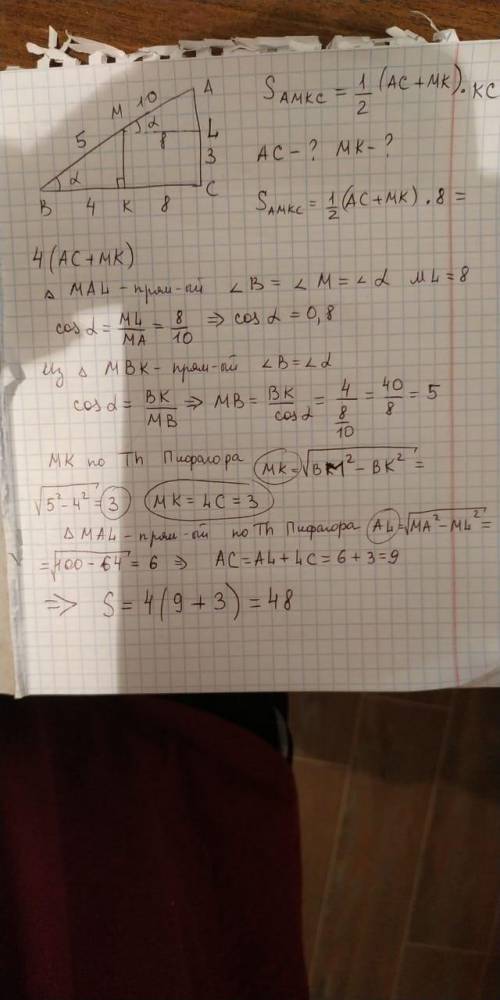 A
M 10
α
5
8
L
3
α
B 4 K 8 C
S_AMKC = 1/2 (AC + MK) · KC
AC - ? MK - ?
S_AMKC = 1/2 (AC + MK) · 8 =
4 (AC + MK)
△ MAL - прям-ый ∠B = ∠M = ∠α ML = 8
cos α = ML/MA = 8/10 ⇒ cos α = 0,8
Из △ MBK - прям-ый ∠B = ∠α
cos α = BK/MB ⇒ MB = BK/cos α = 4/(8/10) = 40/8 = 5
MK по Th Пифагора MK = √(BM² - BK²) =
√(5² - 4²) = 3 MK = LC = 3
△ MAL - прям-ый по Th Пифагора AL = √(MA² - ML²) =
= √(100 - 64) = 6 ⇒ AC = AL + LC = 6 + 3 = 9
⇒ S = 4(9 + 3) = 48